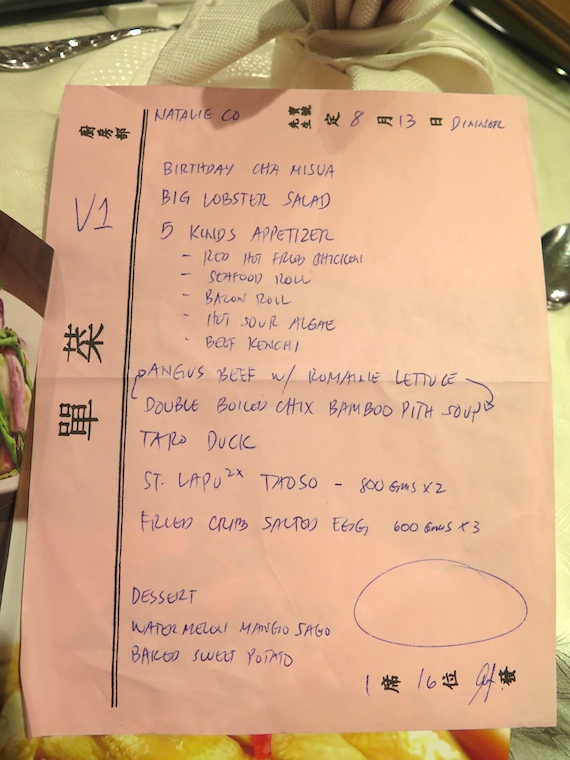 廚房部
NATALIE CO 寶號 先生 定 8 月 13 日 DINNER
V1
菜單
BIRTHDAY CHA MISUA
BIG LOBSTER SALAD
5 KINDS APPETIZER
- RED HOT FRIED CHICKEN
- SEAFOOD ROLL
- BACON ROLL
- HOT SOUR ALGAE
- BEEF KENCHI
ANGUS BEEF W/ ROMAINE LETTUCE
DOUBLE BOILED CHIX BAMBOO PITH SOUP
TARO DUCK
ST. LAPU 2X TAOSO - 800 GMS X 2
FRIED CRAB SALTED EGG 600 GMS X 3
DESSERT
WATERMELON MANGO SAGO
BAKED SWEET POTATO
1 席 16 位 發